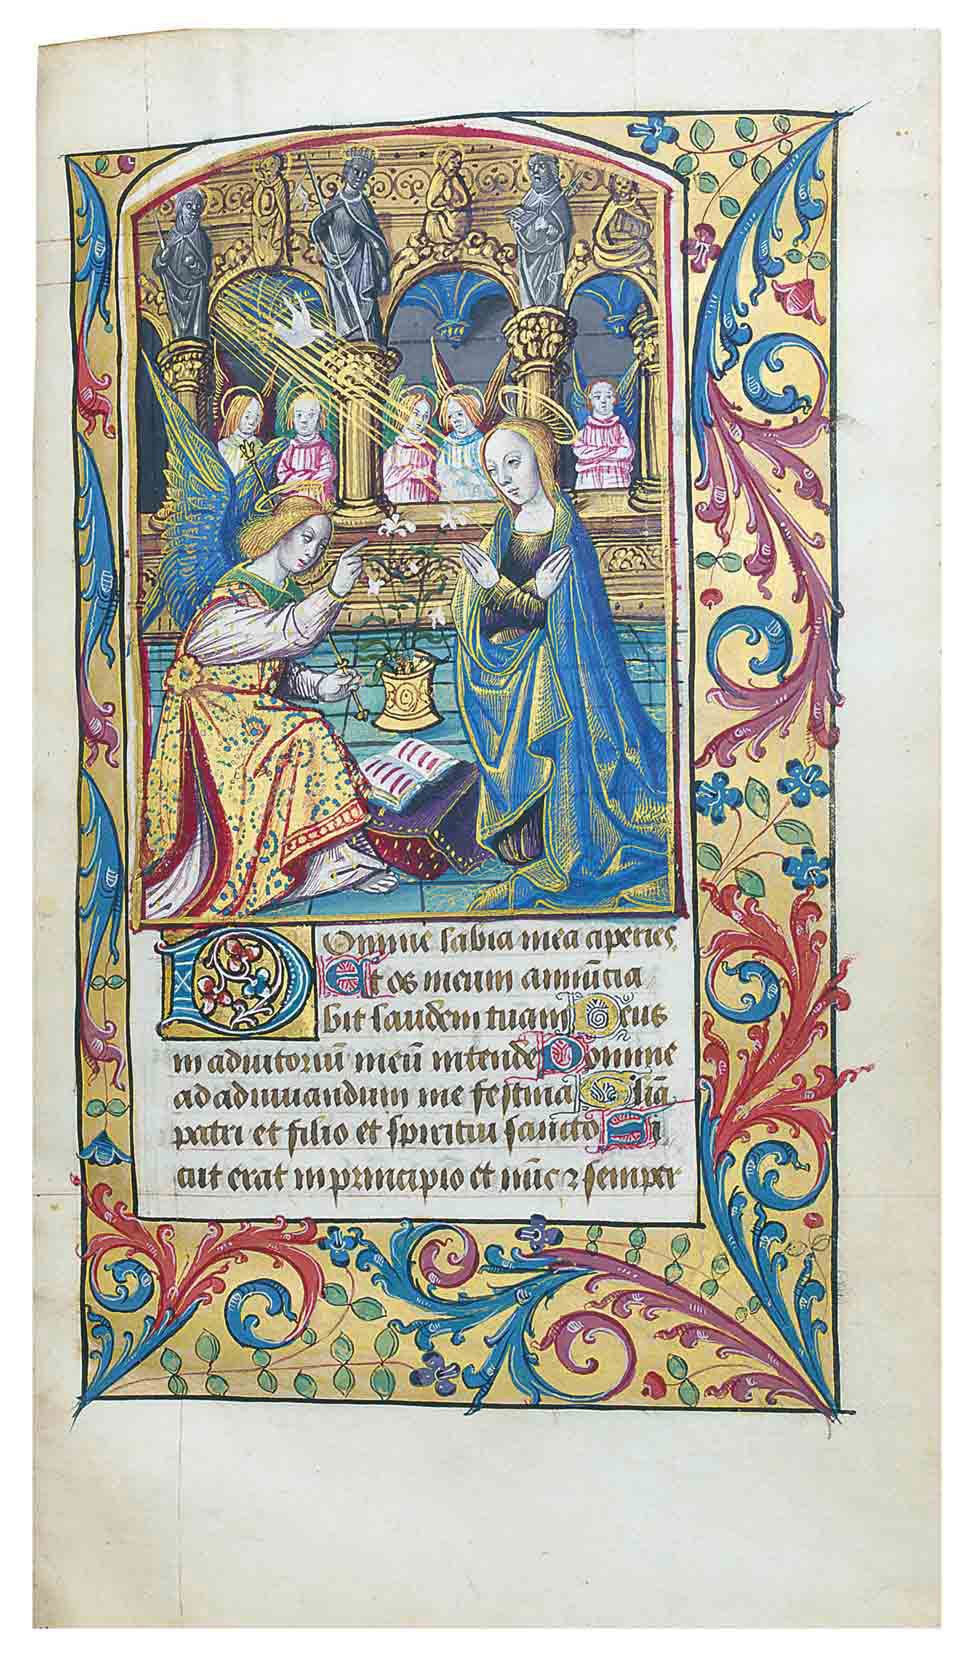 Domine labia mea aperies
Et os meum annūcia
bit laudem tuam Deus
in adiutoriū meū intende Domine
ad adiuuandum me festina Glīa
patri et filio et spiritui sancto Si
cut erat in principio et nūc ⁊ semper